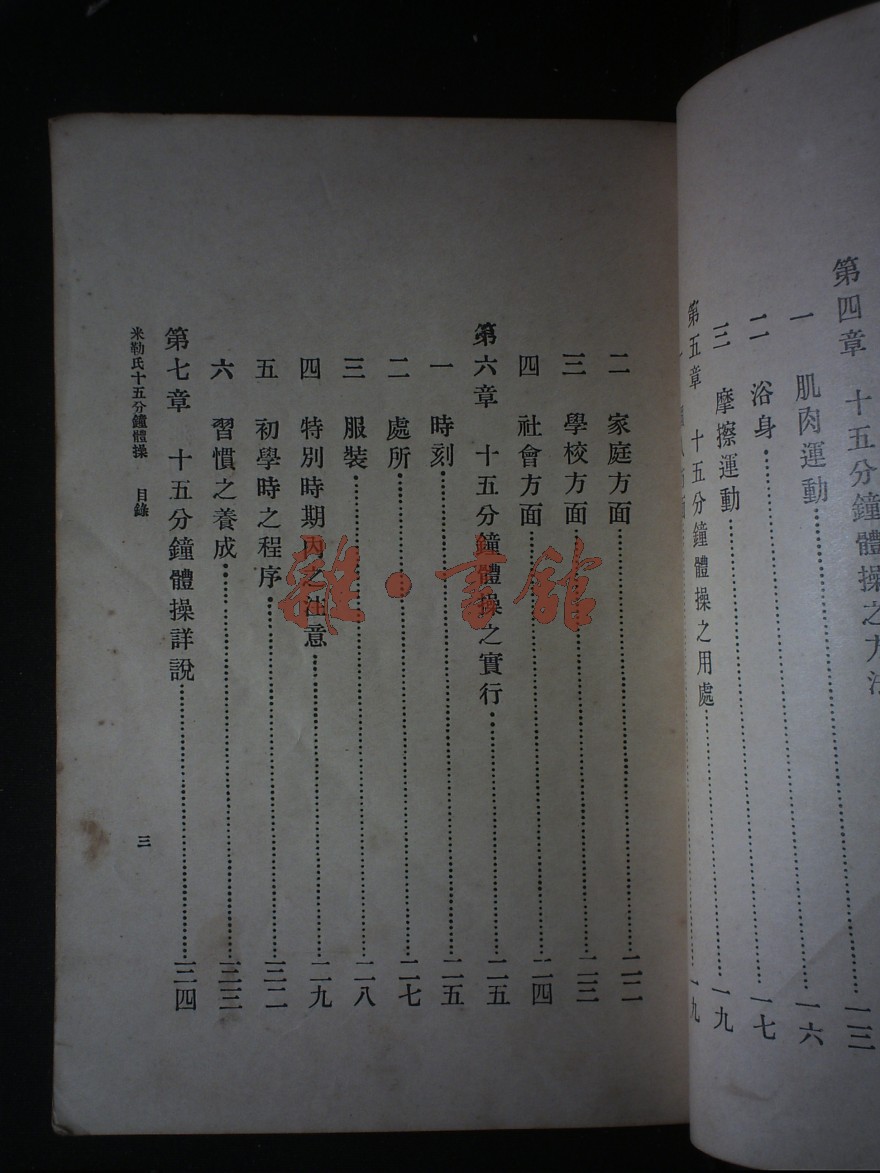 第四章　十五分鐘體操之方法……一三
一　肌肉運動……一六
二　浴身……一七
三　摩擦運動……一九
第五章　十五分鐘體操之用處……一九
二　家庭方面……二二
三　學校方面……二三
四　社會方面……二四
第六章　十五分鐘體操之實行……二五
一　時刻……二五
二　處所……二七
三　服裝……二八
四　特別時期內之注意……二九
五　初學時之程序……三二
六　習慣之養成……三三
第七章　十五分鐘體操詳說……三四
米勒氏十五分鐘體操　目錄　三
雜·書館